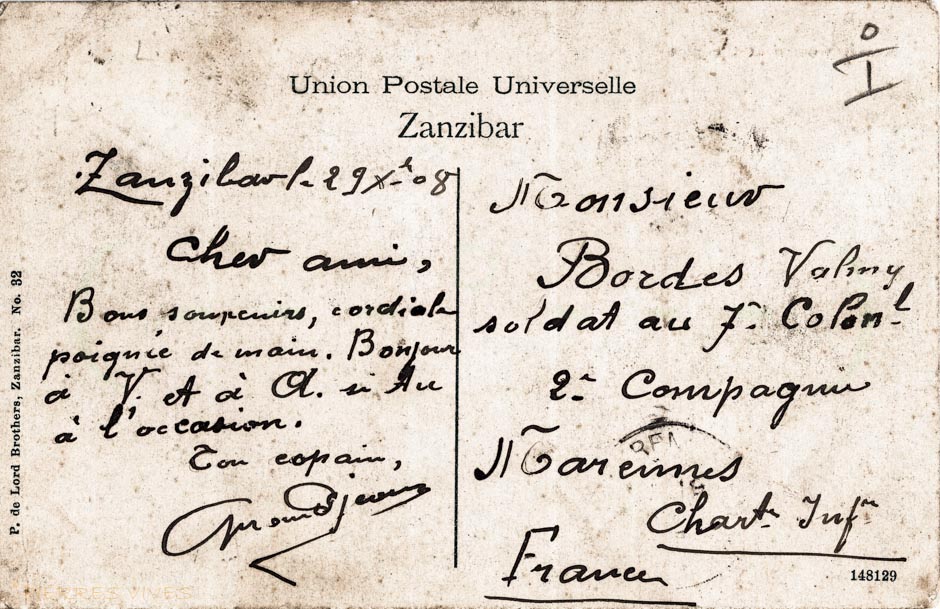 Union Postale Universelle
Zanzibar
Zanzibar le 29 Xbre 08
Cher ami,
Bons souvenirs, cordiale
poignée de main. Bonjour
à V. et à A. si tu
à l'occasion.
Ton copain,
Monsieur
Bordes Valmy
soldat au 7e Colonl
2e Compagnie
Marennes
Charte Infre
France
P. de Lord Brothers, Zanzibar. No. 32
148129
TERRES VIVES